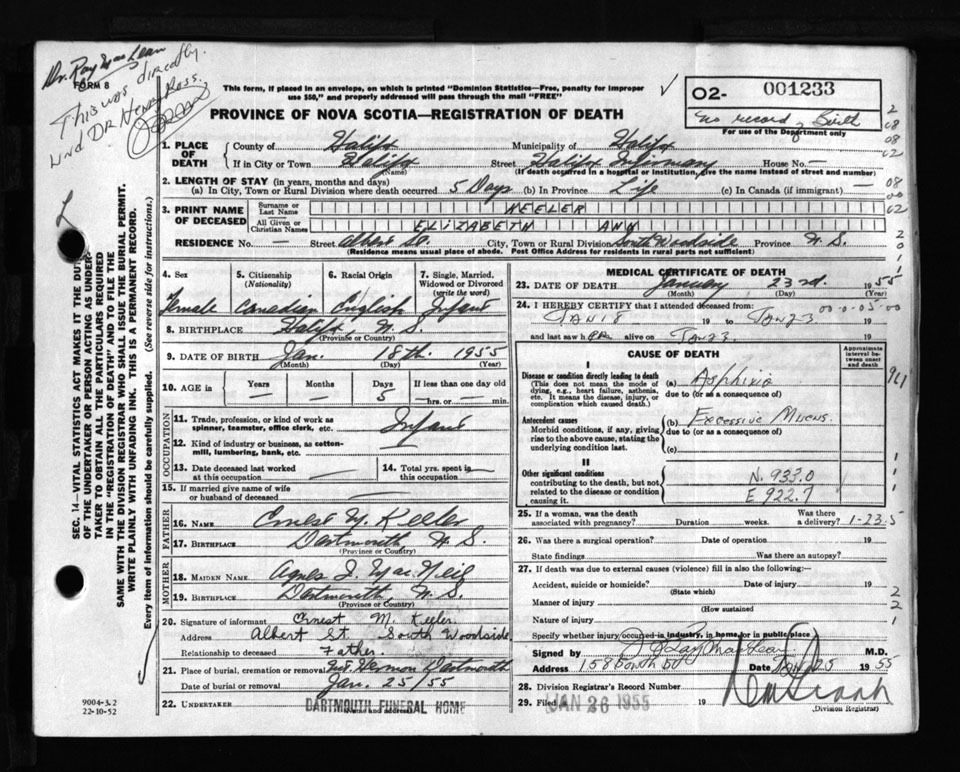 Dr. Ray MacLean
FORM 8
This was directly
Dr Henry Ross.
This form, if placed in an envelope, on which is printed "Dominion Statistics—Free, penalty for improper
use $50," and properly addressed will pass through the mail "FREE"
PROVINCE OF NOVA SCOTIA—REGISTRATION OF DEATH
02- 001233
No record of Birth
For use of the Department only
2
08
08
02
08
00
02
SEC. 14—VITAL STATISTICS ACT MAKES IT THE DUTY
OF THE UNDERTAKER OR PERSON ACTING AS UNDER-
TAKER TO OBTAIN ALL THE PARTICULARS REQUIRED
IN THE "REGISTRATION OF DEATH" AND TO FILE THE
SAME WITH THE DIVISION REGISTRAR WHO SHALL ISSUE THE BURIAL PERMIT.
WRITE PLAINLY WITH UNFADING INK. THIS IS A PERMANENT RECORD.
Every item of information should be carefully supplied. (See reverse side for instructions.)
1. PLACE OF DEATH
County of Halifx Municipality of Halifx
If in City or Town Halifx Street Halifx Infirmary House No. —
(Name) (If death occurred in a hospital or institution, give the name instead of street and number)
2. LENGTH OF STAY (in years, months and days)
(a) In City, Town or Rural Division where death occurred 5 Days (b) In Province Life (c) In Canada (if immigrant) —
3. PRINT NAME OF DECEASED
Surname or Last Name KEELER
All Given or Christian Names ELIZABETH ANN
RESIDENCE No. — Street Albert St. City, Town or Rural Division South Woodside Province N.S.
(Residence means usual place of abode. Post Office Address for residents in rural parts not sufficient)
4. Sex Female
5. Citizenship (Nationality) Canadian
6. Racial Origin English
7. Single, Married, Widowed or Divorced (write the word) Infant
8. BIRTHPLACE Halifx, N.S.
(Province or Country)
9. DATE OF BIRTH Jan. 18th. 1955
(Month) (Day) (Year)
10. AGE in
Years — Months — Days 5 If less than one day old
— hrs. or — min.
OCCUPATION
11. Trade, profession, or kind of work as spinner, teamster, office clerk, etc. Infant
12. Kind of industry or business, as cotton-mill, lumbering, bank, etc. —
13. Date deceased last worked at this occupation —
14. Total yrs. spent in this occupation —
15. If married give name of wife or husband of deceased —
FATHER
16. NAME Ernest M. Keeler
17. BIRTHPLACE Dartmouth N.S.
(Province or Country)
MOTHER
18. MAIDEN NAME Agnes J. MacNeil
19. BIRTHPLACE Dartmouth, N.S.
(Province or Country)
20. Signature of informant Ernest M. Keeler.
Address Albert St. South Woodside.
Relationship to deceased Father.
21. Place of burial, cremation or removal Mt. Hermon Dartmouth
Date of burial or removal Jan. 25/55
22. UNDERTAKER DARTMOUTH FUNERAL HOME
(Name and address)
9004-3.2
22-10-52
MEDICAL CERTIFICATE OF DEATH
23. DATE OF DEATH January 23rd. 1955
(Month) (Day) (Year)
24. I HEREBY CERTIFY that I attended deceased from: 00-0-05-00
Jan 18 19 to Jan 23 19
and last saw her alive on Jan 23. 19
CAUSE OF DEATH
Approximate interval between onset and death
I
Disease or condition directly leading to death
(This does not mean the mode of dying, e.g., heart failure, asthenia, etc. It means the disease, injury, or complication which caused death.)
(a) Asphixia
due to (or as a consequence of)
Antecedent causes
Morbid conditions, if any, giving rise to the above cause, stating the underlying condition last.
(b) Excessive Mucus.
due to (or as a consequence of)
(c)
II
Other significant conditions
contributing to the death, but not related to the disease or condition causing it.
N. 933.0
E 922.7
25. If a woman, was the death associated with pregnancy? Duration weeks. Was there a delivery? 1-23.5
26. Was there a surgical operation? Date of operation 19
State findings Was there an autopsy?
27. If death was due to external causes (violence) fill in also the following:—
Accident, suicide or homicide? Date of injury 19
(State which)
Manner of injury
(How sustained
Nature of injury
Specify whether injury occurred in industry, in home, or in public place
Signed by J Ray MacLean M.D.
Address 158 South St Date Jan 25 1955
28. Division Registrar's Record Number
29. Filed JAN 26 1955 19
(Division Registrar)